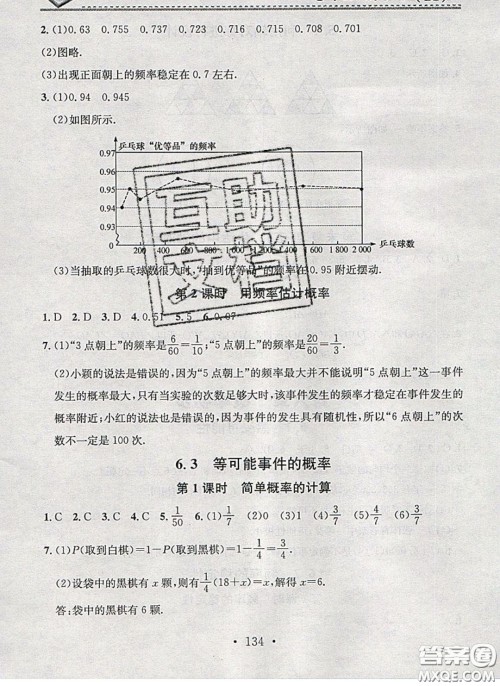 2. (1)0.63　0.755　0.715　0.716　0.708　0.701
(2)图略.
(3)出现正面朝上的频率稳定在 0.7 左右.
3. (1)0.94　0.945
(2)如图所示.
乒乓球“优等品”的频率
0.97
0.96
0.95
0.94
0.93
0 200 400 600 800 1 800 2 000 乒乓球数
(3)当抽取的乒乓球数很大时,“抽到优等品”的频率在 0.95 附近摆动.
第 2 课时　用频率估计概率
1. D　2. D　3. D　4. 0.51　5. 5　6. 0.97
7. (1)“3 点朝上”的频率是6/60=1/10;“5 点朝上”的频率是20/60=1/3.
(2)小颖的说法是错误的,因为“5 点朝上”的频率最大并不能说明“5 点朝上”这一事件
发生的概率最大,只有当实验的次数足够大时,该事件发生的频率才稳定在事件发生的
概率附近;小红的说法也是错误的,因为事件的发生具有随机性,所以“6 点朝上”的次
数不一定是 100 次.
6. 3　等可能事件的概率
第 1 课时　简单概率的计算
1. C　2. C　3. C　4. C　5. 1/50　6. (1)1/7　(2)0　(3)1　(4)3/7　(5)4/7　(6)3/7
7. (1)P(取到白棋)=1-P(取到黑棋)=1-1/4=3/4.
(2)设袋中的黑棋有 x 颗,则有1/4(18+x)=x,解得 x=6.
答:袋中的黑棋有 6 颗.
· 134 ·
互助
文档
答案圈
MXQE.COM